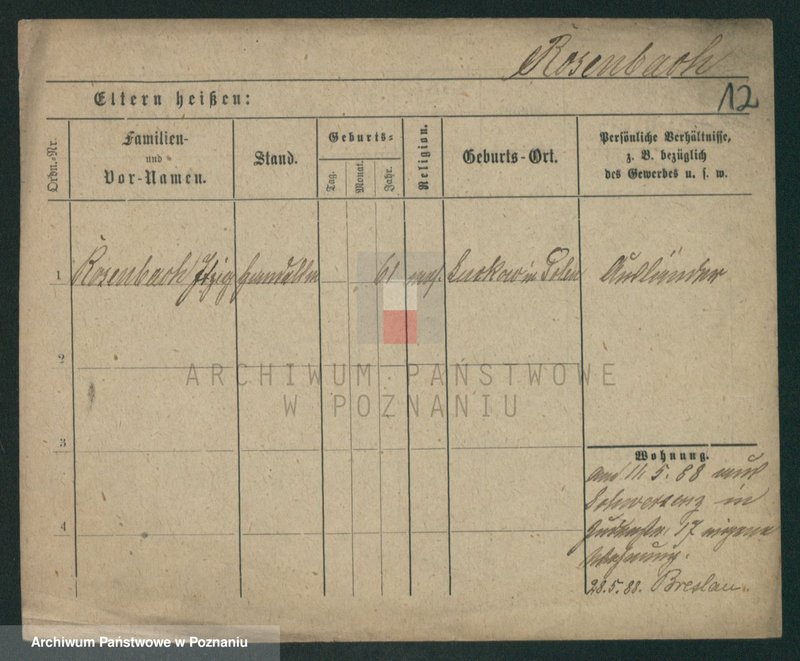 Rosenbach
12
Eltern heißen:
Ordn.-Nr.
Familien-
und
Vor-Namen.
Stand.
Geburts-
Tag.
Monat.
Jahr.
Religion.
Geburts-Ort.
Persönliche Verhältnisse,
z. B. bezüglich
des Gewerbes u. s. w.
1 Rosenbach Itzig 61 mos. in Polen Ausländer
2
ARCHIWUM PAŃSTWOWE
W POZNANIU
3
4
Wohnung.
am 11.5.88 aus
Schwersenz in
17 eigene
Wohnung.
28.5.88. Breslau.
Archiwum Państwowe w Poznaniu